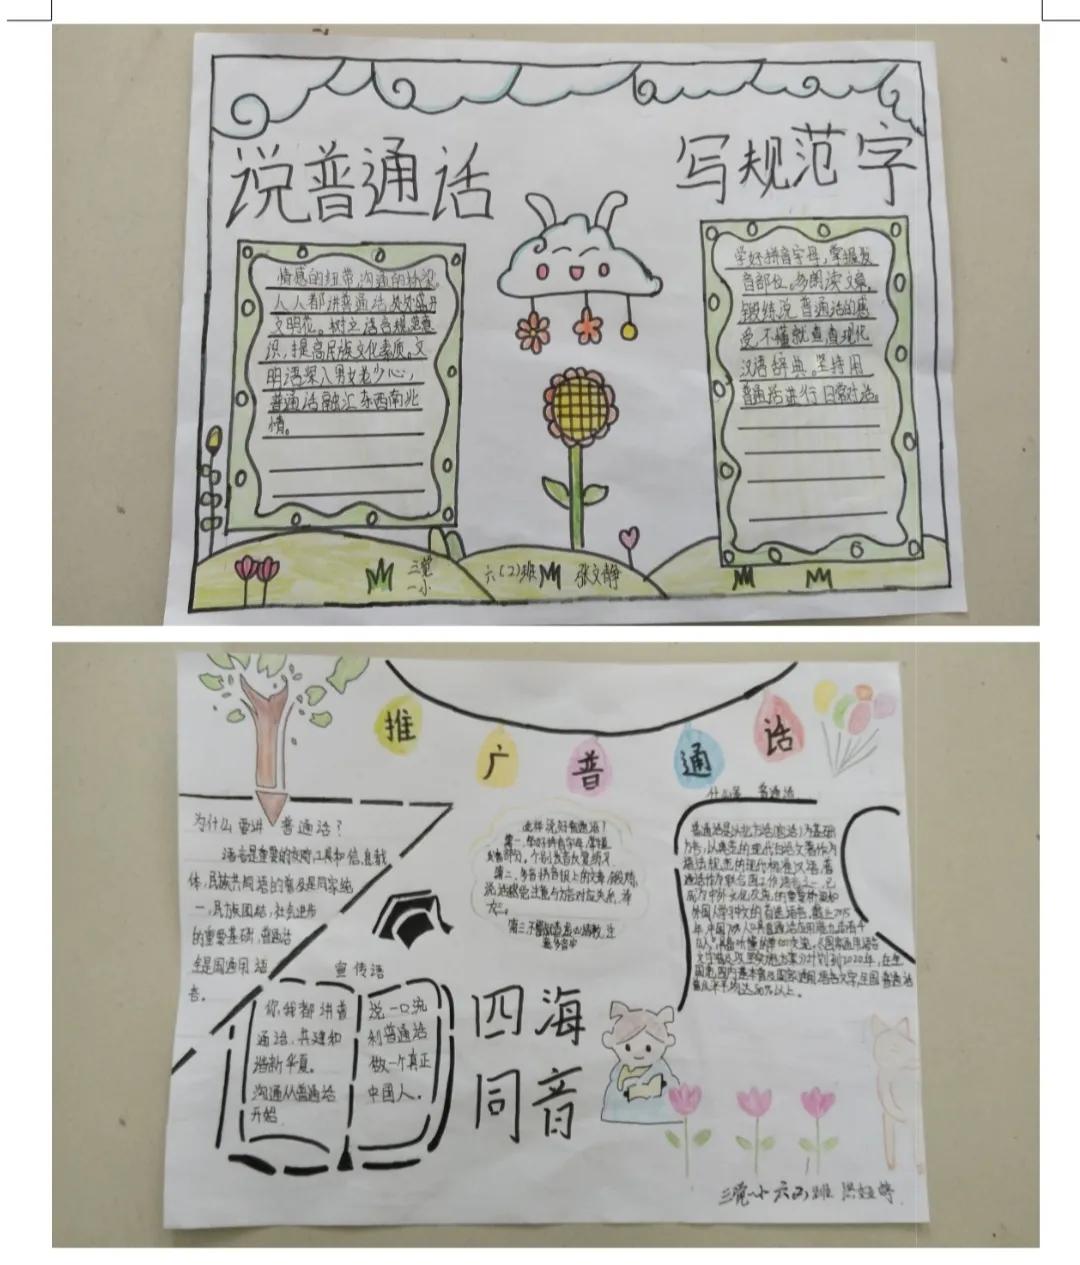 说普通话
写规范字
情感的纽带,沟通的桥梁。
人人都讲普通话,处处盛开
文明花。树立语言规范意
识,提高民族文化素质。文
明语深入男女老少心,
普通话融汇东西南北
情。
学好拼音字母,掌握发
音部位。多朗读文章,
锻练说普通话的感
受,不懂就查查现代
汉语辞典。坚持用
普通话进行日常对话。
三党
一小
六(2)班
张文静
推广普通话
为什么要讲普通话?
语言是重要的交际工具和信息载
体,民族共同语的普及是国家统
一,民族团结,社会进步
的重要基础,普通话
全是国通用话
言。
宣传语
你我都讲普
通话,共建和
谐新华夏。
沟通从普通话
开始
说一口流
利普通话
做一个真正
中国人。
怎样说好普通话?
第一,学好拼音字母,掌握
四海
同音
什么是普通话
普通话是以北方话(官话)为基础
方言,以典范的现代白话文著作为
语法规范的现代标准汉语,普
通话作为联合国工作语言之一,已
成为中外文化交流的重要桥梁和
外国人学习中文的首选语言。截止2015
三党一小六(2)班